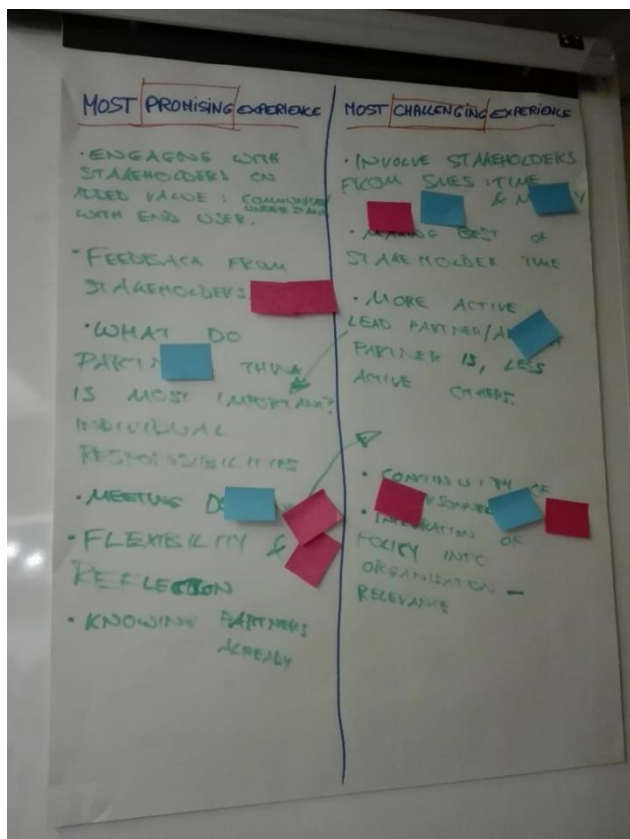 MOST PROMISING EXPERIENCE
• ENGAGING WITH
STAKEHOLDERS ON
ADDED VALUE :
WITH END USER.
• FEEDBACK FROM
STAKEHOLDERS
• WHAT DO
THINK
IS MOST IMPORTANT?
INDIVIDUAL
RESPONSIBILITIES
• MEETING
• FLEXIBILITY &
REFLECTION
• KNOWING PARTNERS
ALREADY
MOST CHALLENGING EXPERIENCE
• INVOLVE STAKEHOLDERS
FROM SMES : TIME
&
• MAKING BEST OF
STAKEHOLDER TIME
• MORE ACTIVE
LEAD PARTNER/
PARTNER IS, LESS
ACTIVE OTHERS.
• CONTINUITY OF
• INTEGRATION OF
POLICY INTO
ORGANISATION –
RELEVANCE